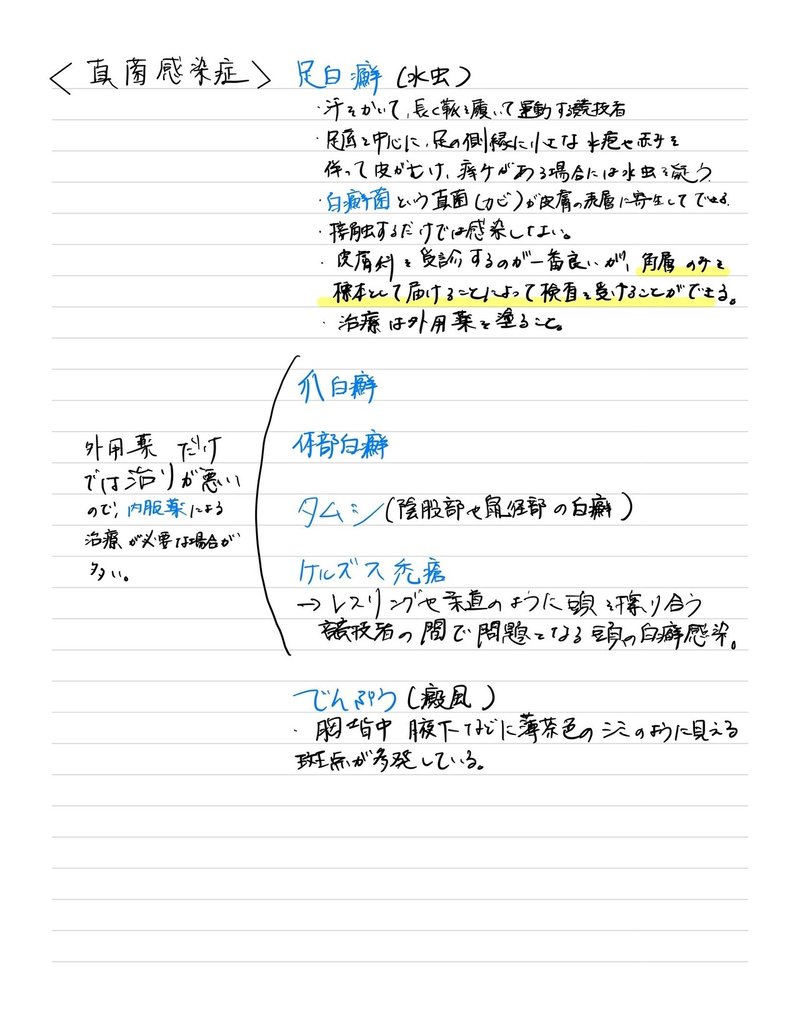 〈真菌感染症〉 足白癬(水虫)
・汗をかいて、長く靴を履いて運動する競技者
・足底を中心に、足の側縁に小さな水疱や赤みを
伴って皮がむけ、痒みがある場合には水虫を疑う
・白癬菌という真菌(カビ)が皮膚の表層に寄生してできる.
・接触するだけでは感染しない。
・皮膚科を受診するのが一番良いが、角層のみを
標本として届けることによって検査を受けることができる。
・治療は外用薬を塗ること。
爪白癬
体部白癬
タムシ(陰股部や鼠径部の白癬)
ケルズス禿瘡
→レスリングや柔道のように頭を擦り合う
競技者の間で問題となる頭の白癬感染。
外用薬だけ
では治りが悪い
ので、内服薬による
治療が必要な場合が
多い。
でんぷう(癜風)
・胸背中腋下などに薄茶色のシミのように見える
斑点が多発している。